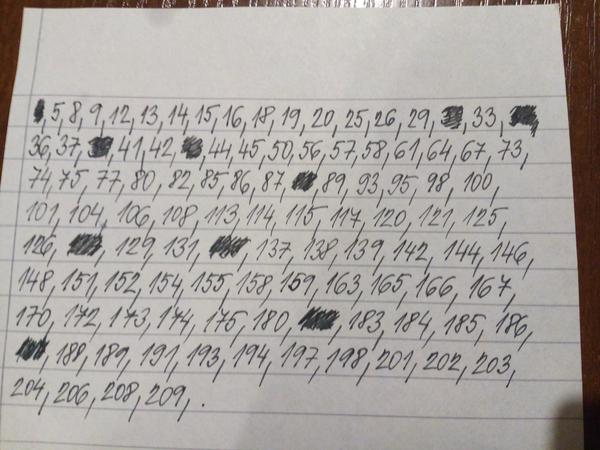 5, 8, 9, 12, 13, 14, 15, 16, 18, 19, 20, 25, 26, 29, 33,
36, 37, 41, 42, 44, 45, 50, 56, 57, 58, 61, 64, 67, 73,
74, 75, 77, 80, 82, 85, 86, 87, 89, 93, 95, 98, 100,
101, 104, 106, 108, 113, 114, 115, 117, 120, 121, 125,
126, 129, 131, 137, 138, 139, 142, 144, 146,
148, 151, 152, 154, 155, 158, 159, 163, 165, 166, 167,
170, 172, 173, 174, 175, 180, 183, 184, 185, 186,
188, 189, 191, 193, 194, 197, 198, 201, 202, 203,
204, 206, 208, 209, .